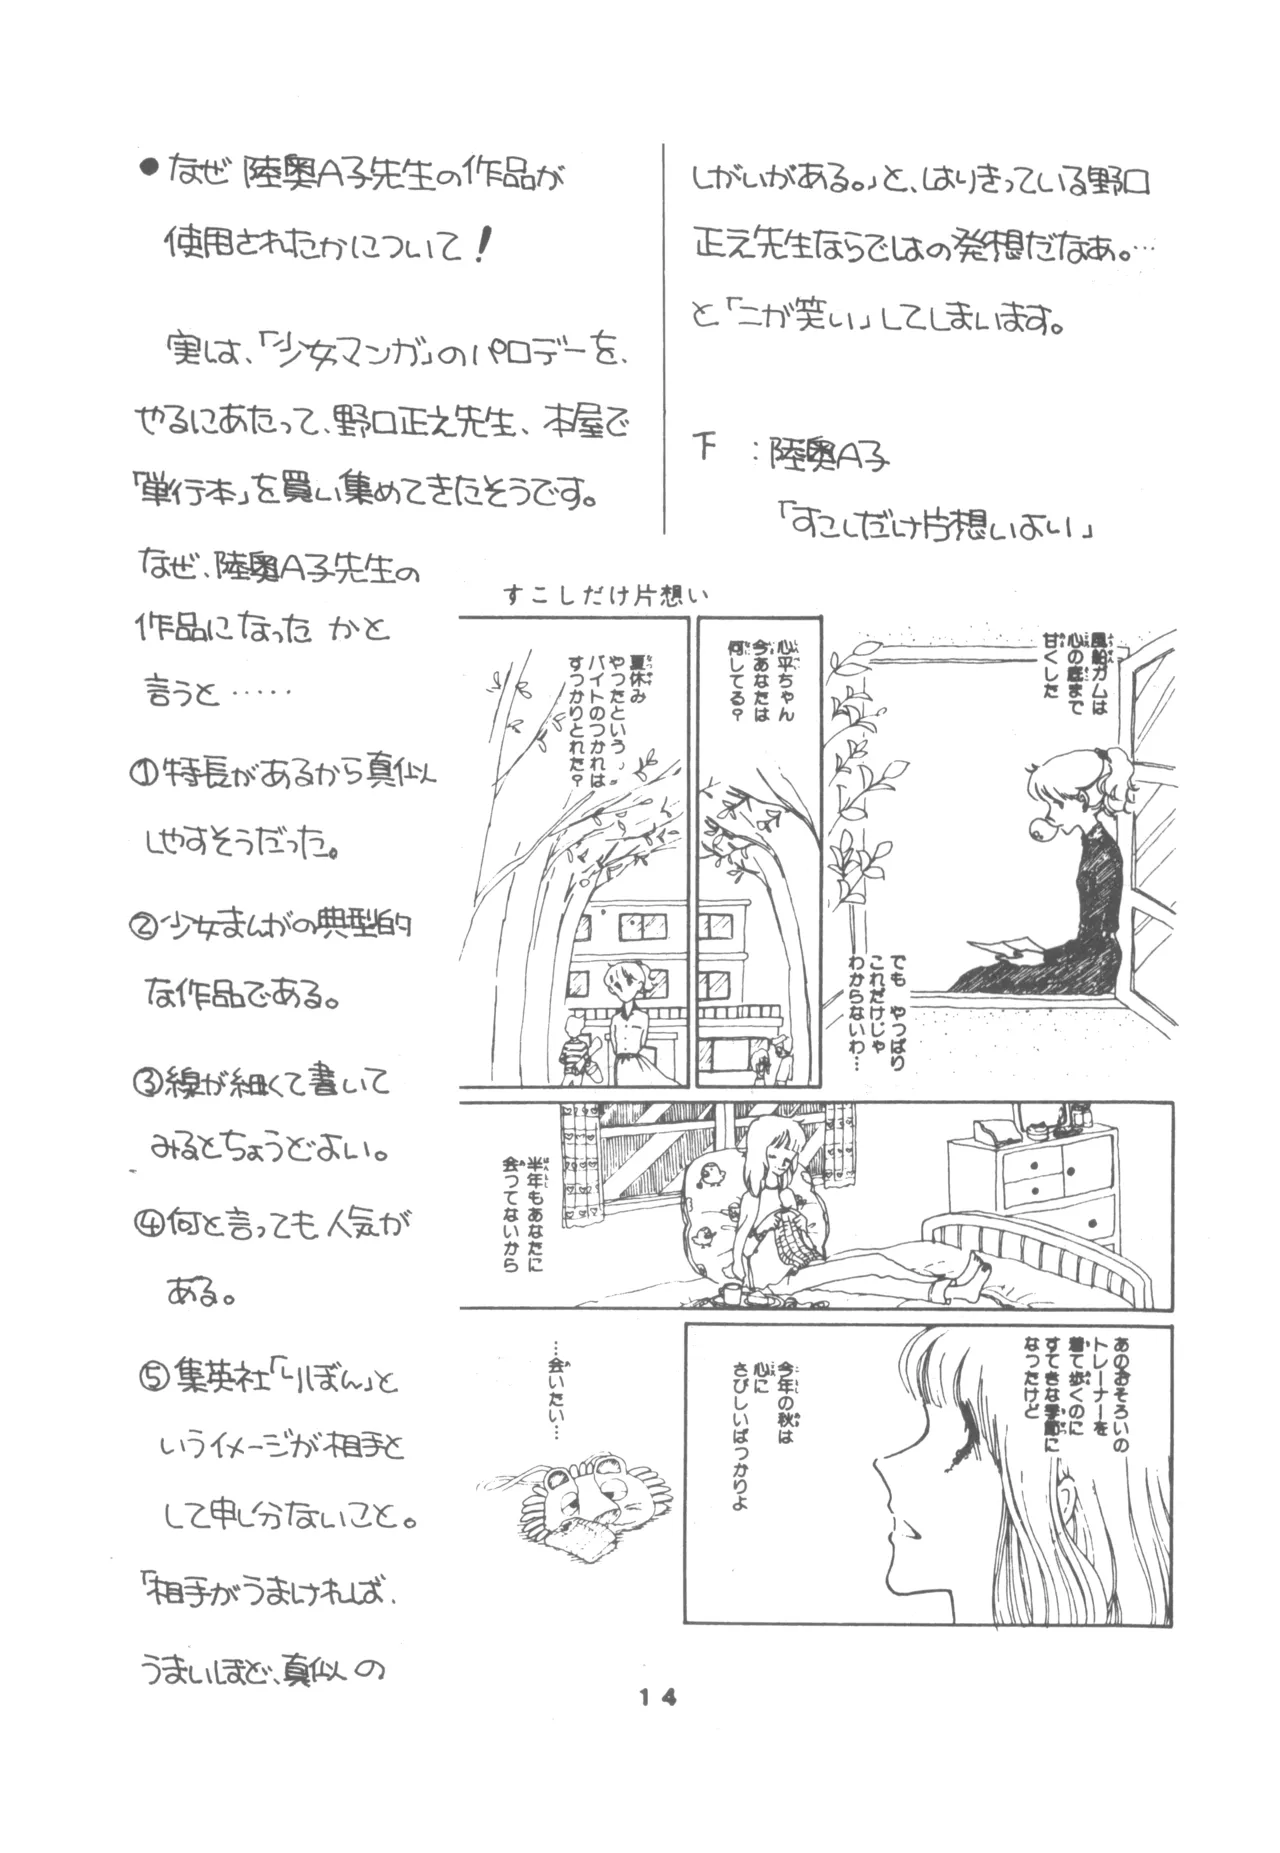 ●なぜ 陸奥A子先生の作品が
使用されたかについて!
実は、「少女マンガ」のパロデーを、
やるにあたって、野口正之先生、本屋で
「単行本」を買い集めてきたそうです。
なぜ、陸奥A子先生の
作品になった かと
言うと‥‥‥
①特長があるから真似
しやすそうだった。
②少女まんがの典型的
な作品である。
③線が細くて書いて
みるとちょうどよい。
④何と言っても人気が
ある。
⑤集英社「りぼん」と
いうイメージが相手と
して申し分ないこと。
「相手がうまければ、
うまいほど、真似の
しがいがある。」と、はりきっている野口
正之先生ならではの発想だなあ。…
と「にが笑い」してしまいます。
下 :陸奥A子
「すこしだけ片想いよい」
すこしだけ片想い
風船ガムは
心の底まで
甘くした
でも やっぱり
これだけじゃ
わからないわ…
心平ちゃん
今あなたは
何してる?
夏休み
やったという
バイトのつかれは
すっかりとれた?
半年もあなたに
会ってないから
あのおそろいの
トレーナーを
着て歩くのに
すてきな季節に
なったけど
今年の秋は
心に
さびしいばっかりよ
…会いたい…
14